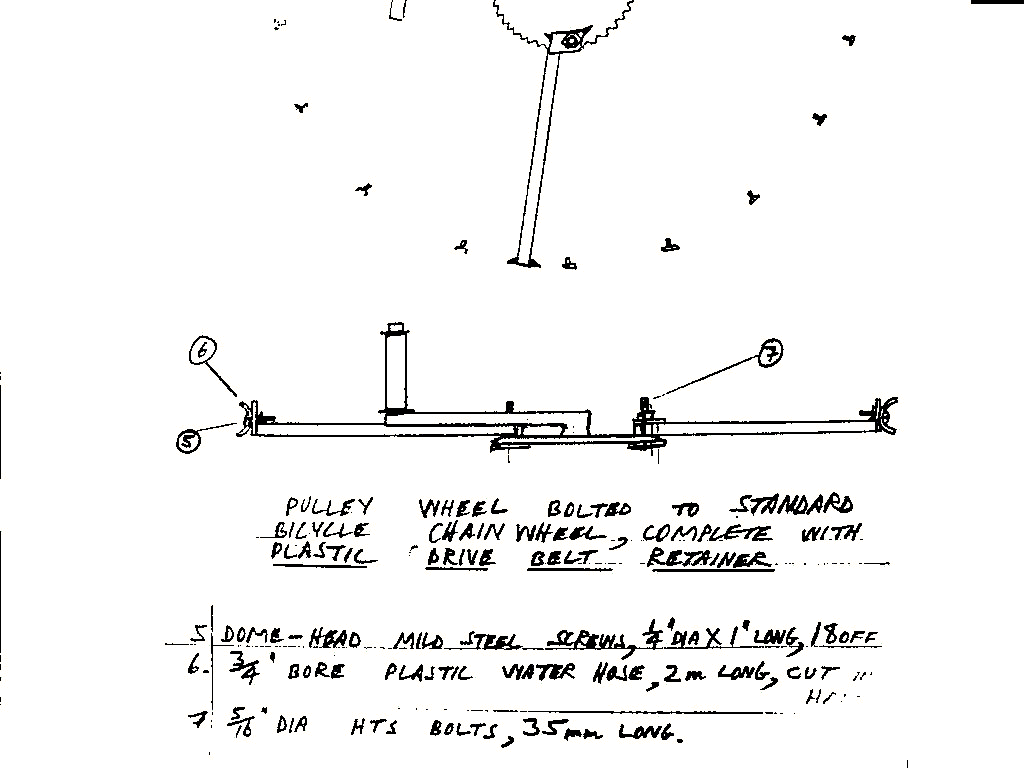 6
7
5
PULLEY WHEEL BOLTED TO STANDARD
BICYCLE CHAIN WHEEL, COMPLETE WITH
PLASTIC DRIVE BELT RETAINER
5 DOME-HEAD MILD STEEL SCREWS, 1/4" DIA X 1" LONG, 18 OFF
6. 3/4" BORE PLASTIC WATER HOSE, 2m LONG, CUT
7 5/16" DIA HTS BOLTS, 35mm LONG.